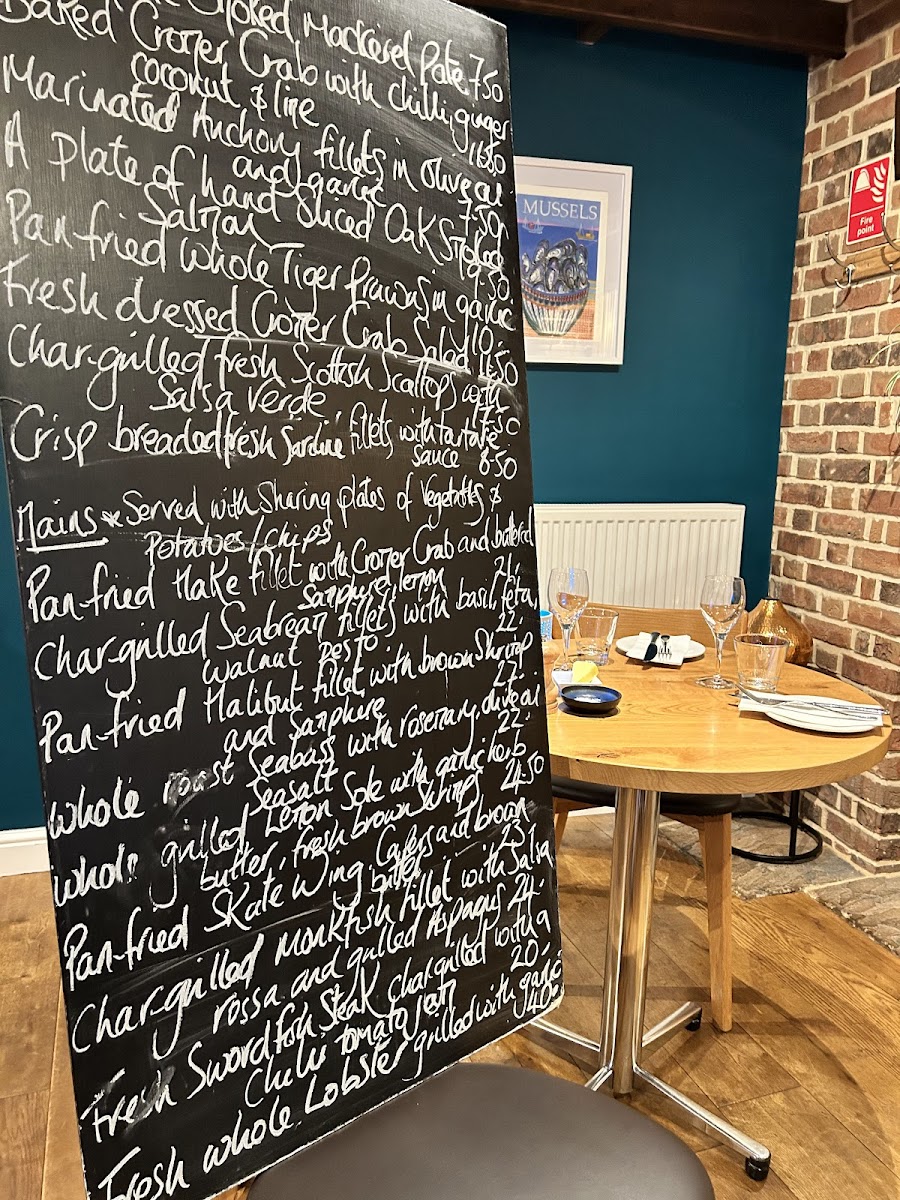 Smoked Mackerel Pate 7.50
Baked Cromer Crab with chilli, ginger
coconut & lime 11.50
Marinated Anchovy fillets in olive oil
and garlic 7.50
A plate of hand sliced Oak Smoked
Salmon 9.50
Pan fried whole Tiger Prawns in garlic
10.
Fresh dressed Cromer Crab Salad 11.50
Char-grilled fresh Scottish Scallops with
Salsa Verde 17.50
Crisp breaded fresh Sardine fillets with tartare
sauce 8.50
Mains * Served with Sharing plates of Vegetables &
Potatoes / chips
Pan-fried Hake fillet with Cromer Crab and buttered
Samphire, lemon 24.
Char-grilled Seabream fillets with basil, feta,
walnut pesto 22.
Pan fried Halibut fillet with brown shrimp
and Samphire 27.
whole roast Seabass with rosemary, olive oil
Seasalt 22.
whole grilled Lemon Sole with garlic herb
butter, fresh brown shrimps 24.50
Pan-fried Skate Wing Capers and brown
butter 23.
Char-grilled monkfish fillet with Salsa
rossa and grilled Asparagus 24.
Fresh Swordfish Steak char-grilled with a
Chilli tomato jam 20.
Fresh whole Lobster grilled with garlic
40.
MUSSELS
Fire
point